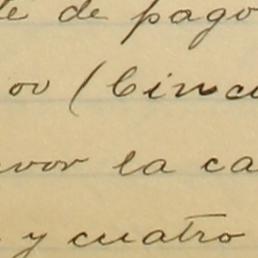 te de pago
or (Cincu
avor la ca
y cuatro